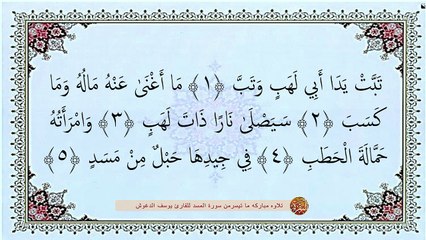 تَبَّتْ يَدَا أَبِي لَهَبٍ وَتَبَّ ﴿١﴾ مَا أَغْنَىٰ عَنْهُ مَالُهُ وَمَا
كَسَبَ ﴿٢﴾ سَيَصْلَىٰ نَارًا ذَاتَ لَهَبٍ ﴿٣﴾ وَامْرَأَتُهُ
حَمَّالَةَ الْحَطَبِ ﴿٤﴾ فِي جِيدِهَا حَبْلٌ مِنْ مَسَدٍ ﴿٥﴾
تلاوه مباركه ما تيسرمن سورة المسد للقارئ يوسف الدغوش